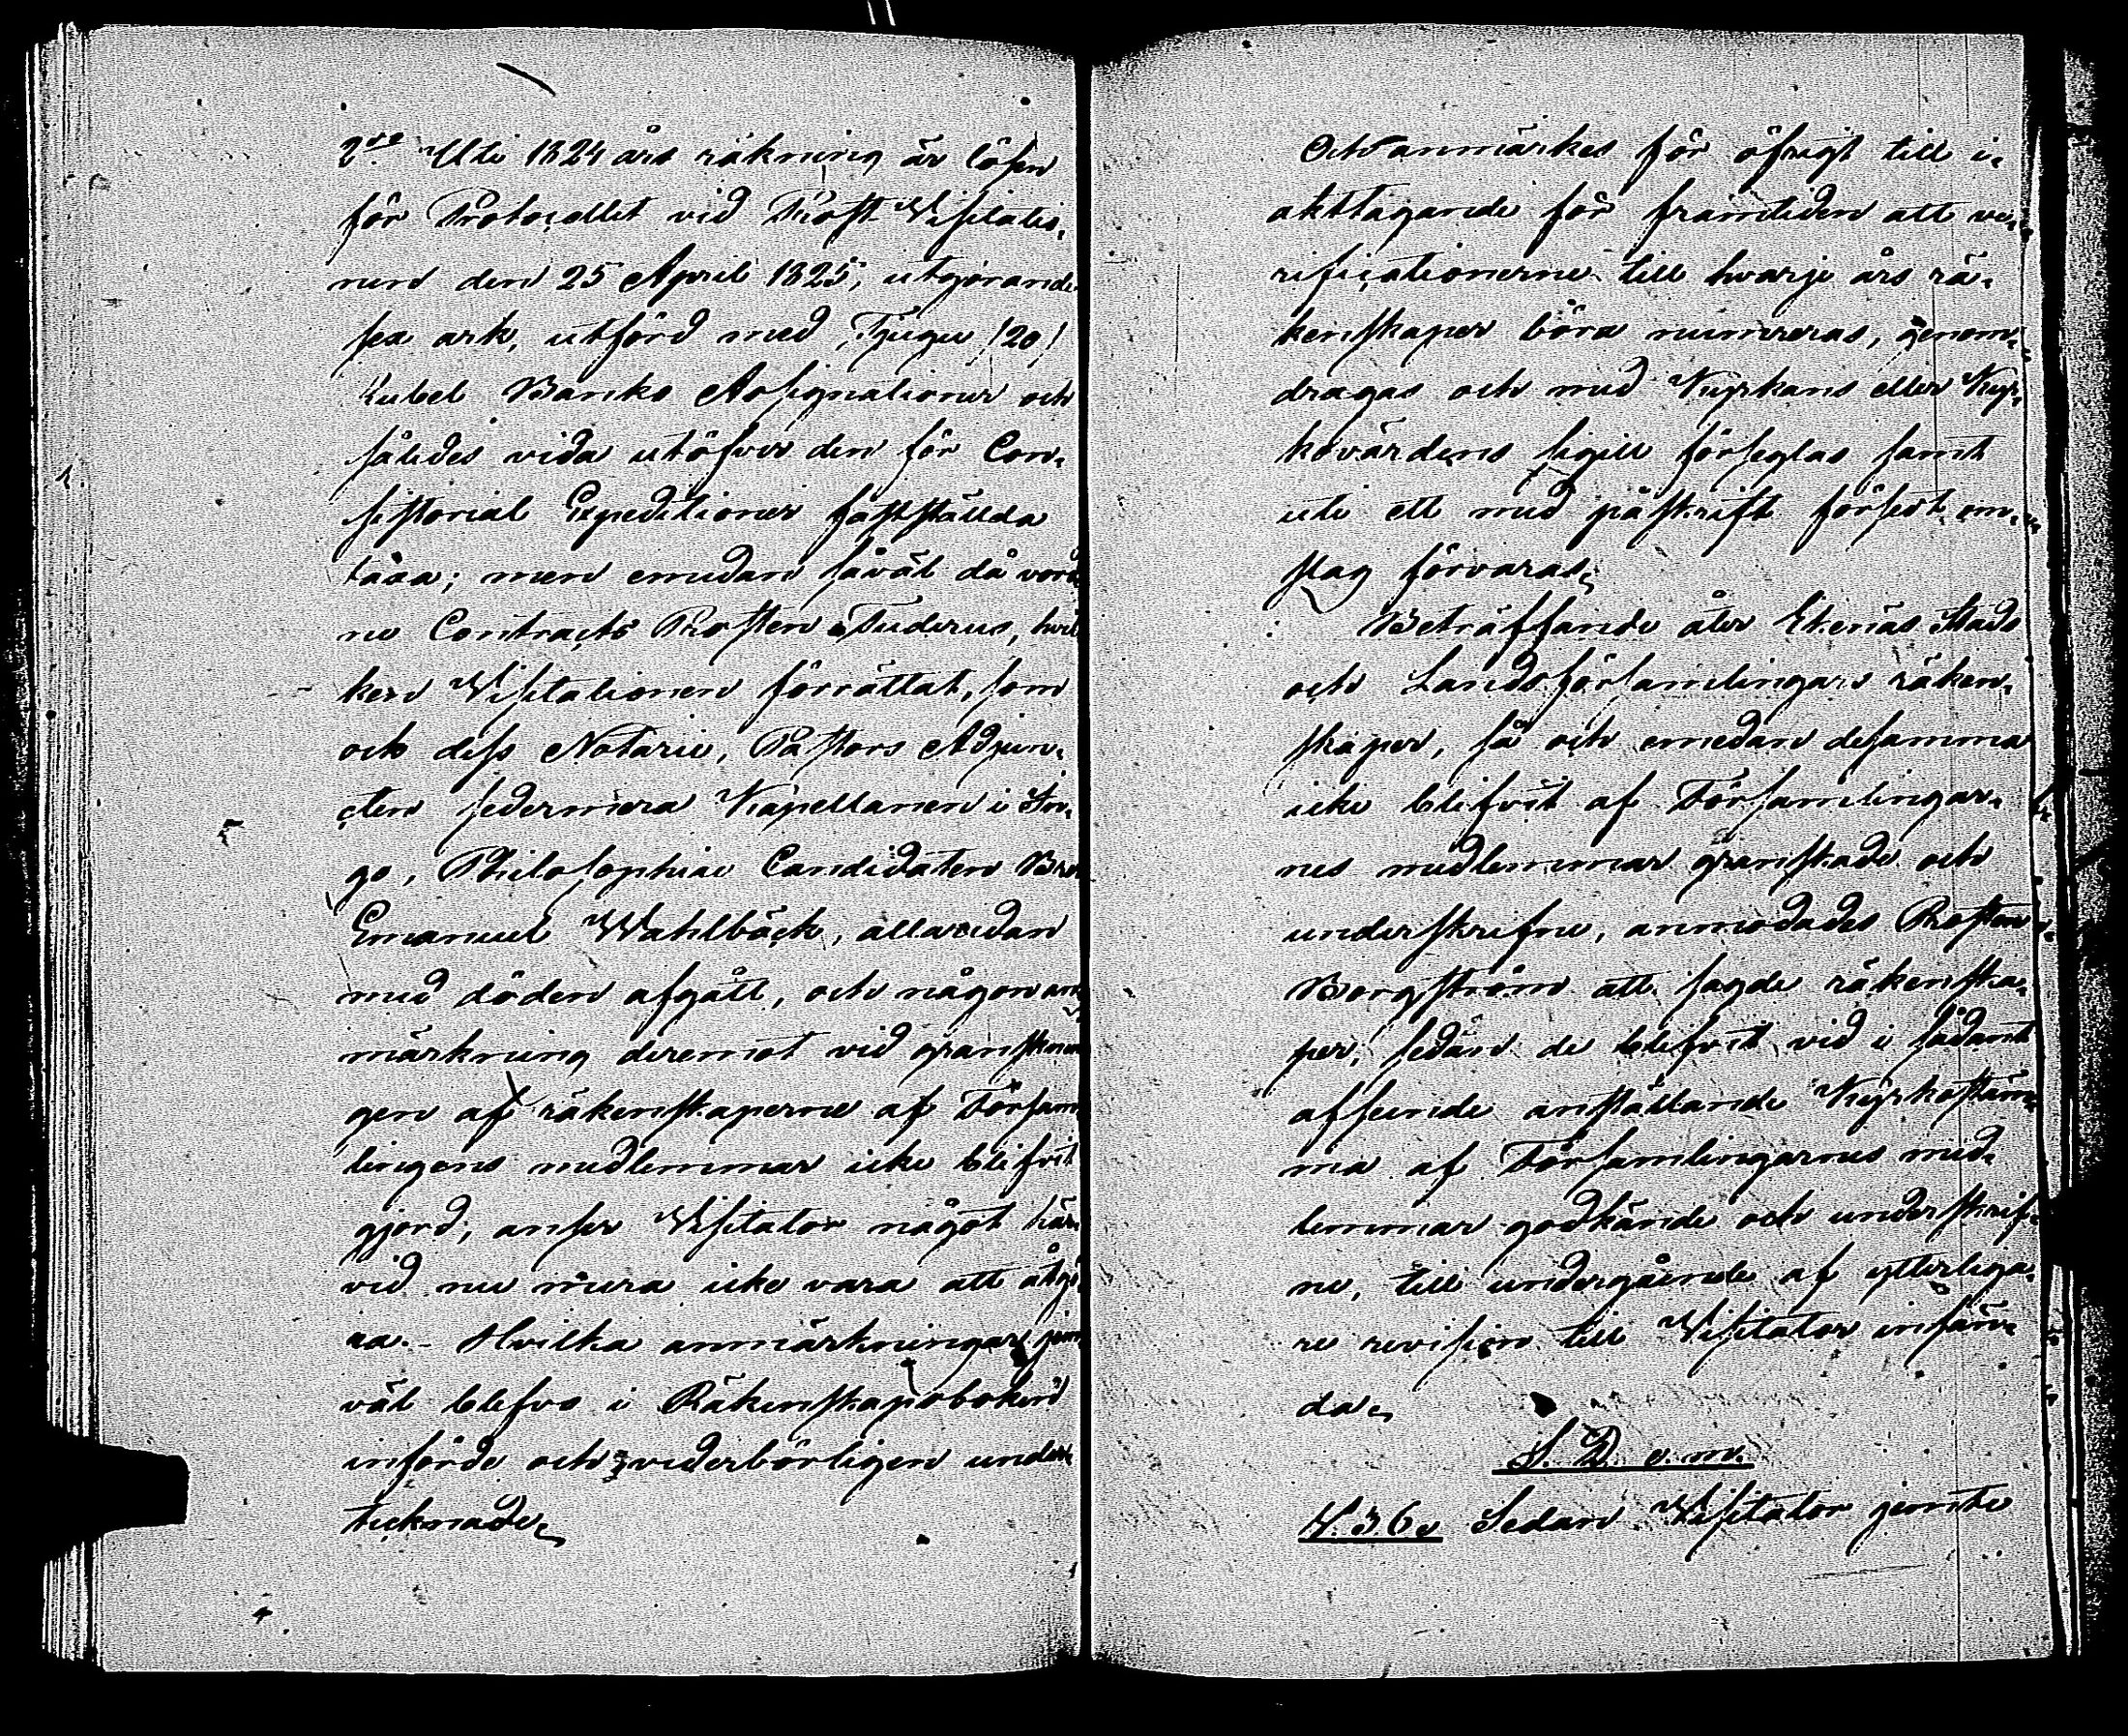 2do Uti 1824 års räkning är lösen
för Protocollet vid Prost Visitatio,
nen den 25 April 1825, utgörande
sex ark, utförd med, Tjugu /20/
Rubel Banko Assignationer och
således vida utöfver den för Con,
sistorial Expeditioner fastställda
taxa; men emedan såväl då vara
ne Contracts Prosten Tuderus, hvil
ken Visitationen förrättat, som
ock dess Notarie, Pastors Adjun,
cten sedermera Kapellanen i In,
go, Philosophiae Candidaten
Emanuel Wahlbäck, allaredan
med döden afgått, och någon an
märkning deremot vid gransknin
gen af räkenskaperne af Försam
lingens medlemmar icke blifvit
gjord; anser Visitator något här
vid nu mera icke vara att åtgö
ra. - Hvilka anmärkningar jem
väl blefvo i Räkenskapsboken
införde och vederbörligen under
tecknade.
Och anmärkes för öfrigt till i,
akttagande för framtiden att ve,
rificationerne till hvarje års rä,
kenskaper böra numreras, genom,
dragas och med Kyrkans eller Kyr,
kovärdens sigill förseglas samt
uti ett med påskrift försedt om,
slag förvaras.
Beträffande åter Ekenäs Stads
och Landsförsamlingars räken,
skaper, så och emedan desamma
icke blifvit af Församlingar,
nes medlemmar granskade och
underskrifne, anmodades Prosten
Borgström att sagde räkenska,
per, sedan de blifvit vid i sådant
afseende anställande Kyrkostäm,
ma af Församlingarnes med,
lemmar godkände och underskrif,
ne, till undergående af ytterliga,
re revision till Visitator insän,
da.
S. D. e. m.
§. 36. Sedan Visitator jemte